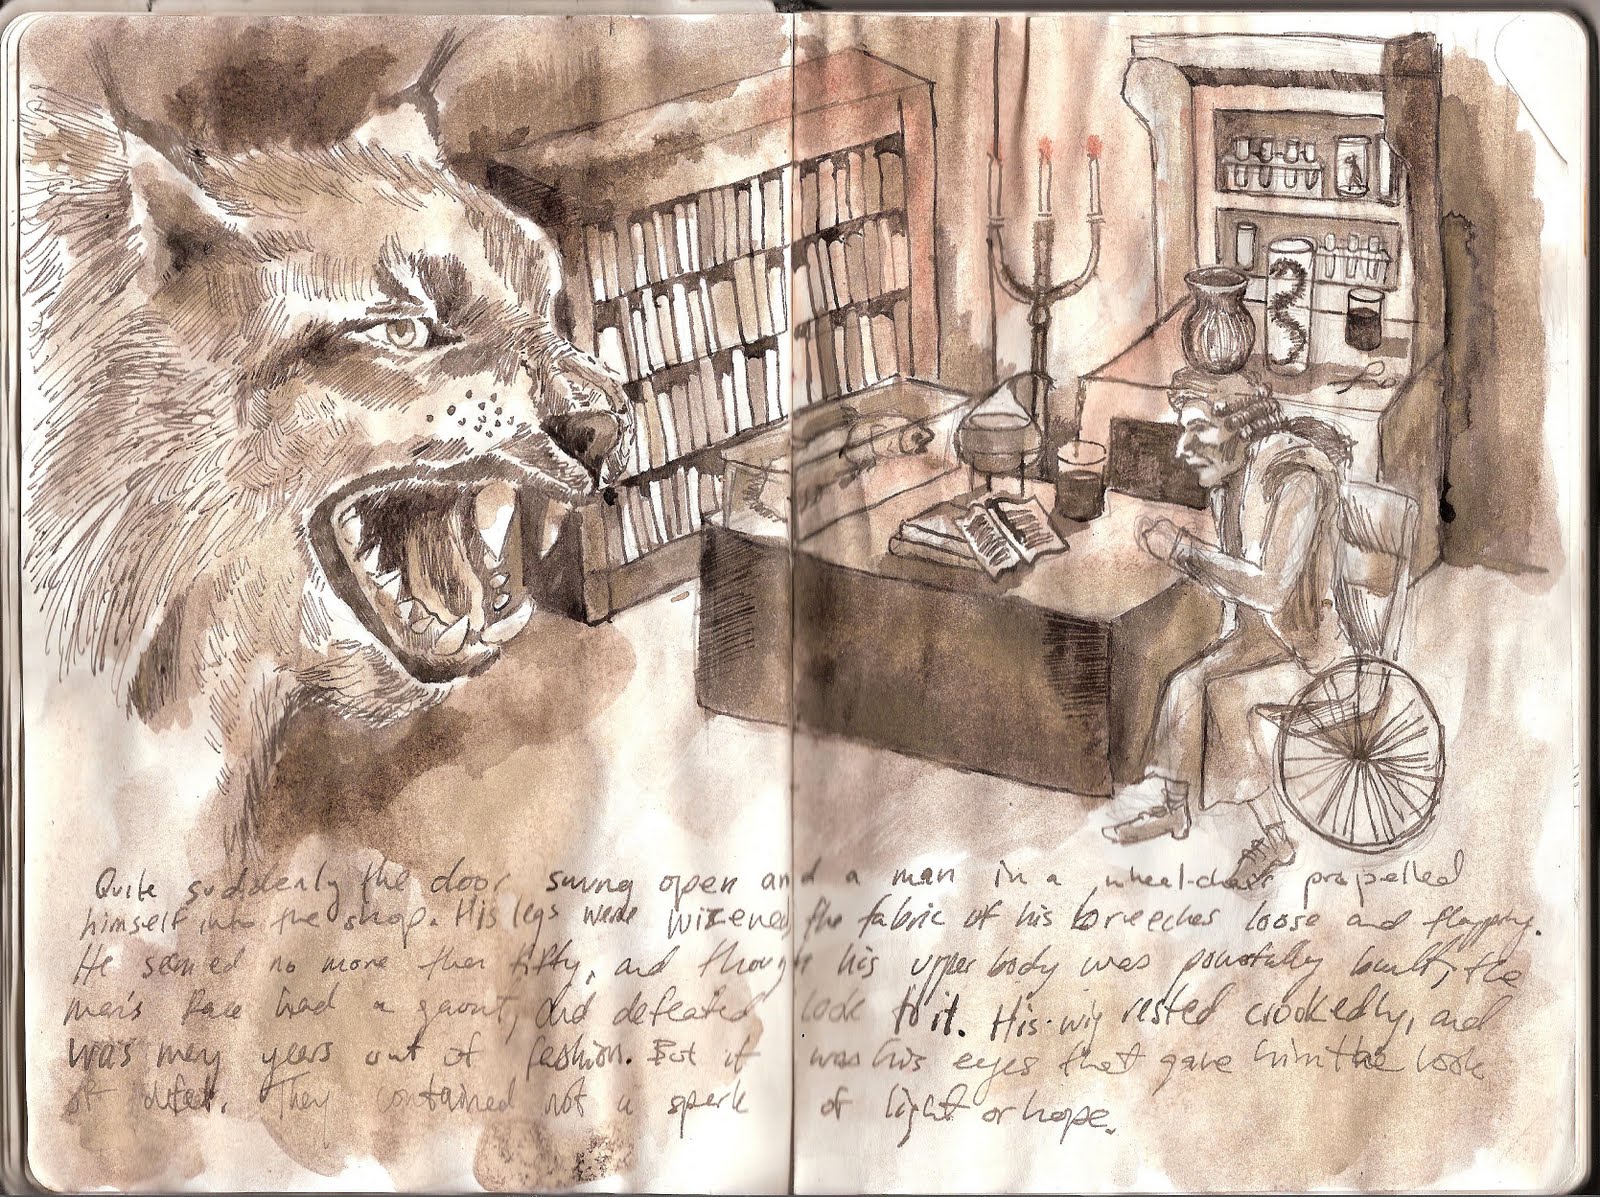 Quite suddenly the door swung open and a man in a wheel-chair propelled
himself into the shop. His legs were wizened, the fabric of his breeches loose and flapping.
He seemed no more than fifty, and though his upper body was powerfully built, the
man's face had a gaunt, and defeated look to it. His wig rested crookedly, and
was many years out of fashion. But it was his eyes that gave him the look
of defeat. They contained not a spark of light or hope.